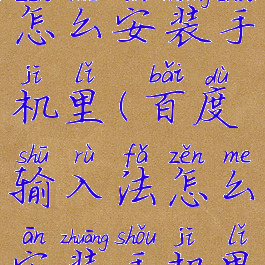 怎么安装手
jī lǐ bǎi dù
机里(百度
shū rù fǎ zěn me
输入法怎么
ān zhuāng shǒu jī lǐ
安装手机里